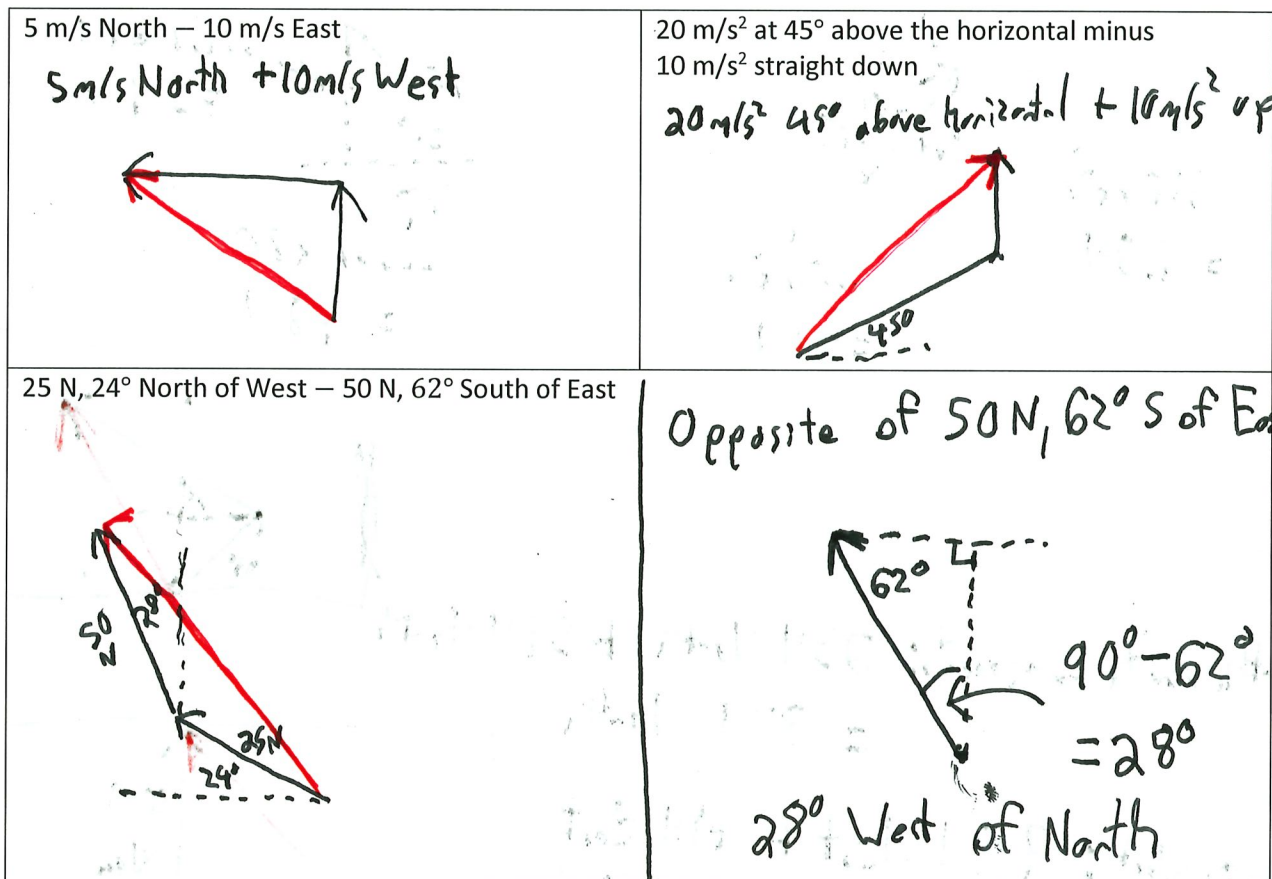 5 m/s North – 10 m/s East
5m/s North +10m/s West
20 m/s² at 45° above the horizontal minus
10 m/s² straight down
20m/s² 45° above horizontal + 10m/s² up
45°
25 N, 24° North of West – 50 N, 62° South of East
28°
50
N
25N
24°
Opposite of 50N, 62° S of Eas
62°
90°-62°
=28°
28° West of North